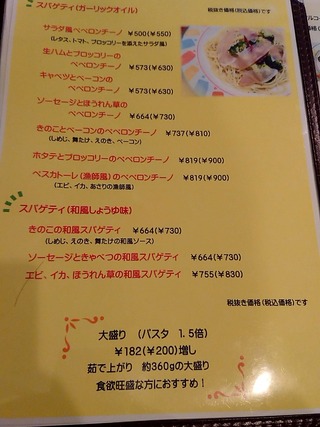 スパゲティ(ガーリックオイル)
税抜き価格(税込価格)です
サラダ風ペペロンチーノ ￥500(￥550)
(レタス、トマト、ブロッコリーを添えたサラダ風)
生ハムとブロッコリーの
ペペロンチーノ ￥573(￥630)
キャベツとベーコンの
ペペロンチーノ ￥573(￥630)
ソーセージとほうれん草の
ペペロンチーノ ￥664(￥730)
きのことベーコンのペペロンチーノ ￥737(￥810)
(しめじ、舞たけ、えのき、ベーコン)
ホタテとブロッコリーのペペロンチーノ ￥819(￥900)
ペスカトーレ(漁師風)のペペロンチーノ ￥819(￥900)
(エビ、イカ、あさりの漁師風)
スパゲティ(和風しょうゆ味)
きのこの和風スパゲティ ￥664(￥730)
(しめじ、えのき、舞たけの和風ソース)
ソーセージときゃべつの和風スパゲティ ￥664(￥730)
エビ、イカ、ほうれん草の和風スパゲティ ￥755(￥830)
税抜き価格(税込価格)です
大盛り (パスタ 1.5倍)
￥182(￥200)増し
茹で上がり 約360gの大盛り
食欲旺盛な方におすすめ！